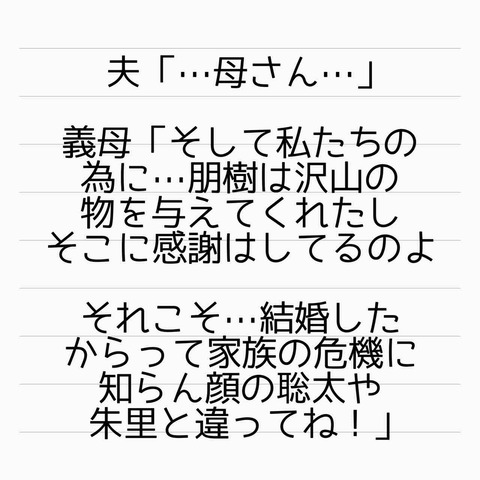 夫「…母さん…」
義母「そして私たちの
為に…朋樹は沢山の
物を与えてくれたし
そこに感謝はしてるのよ
それこそ…結婚した
からって家族の危機に
知らん顔の聡太や
朱里と違ってね！」